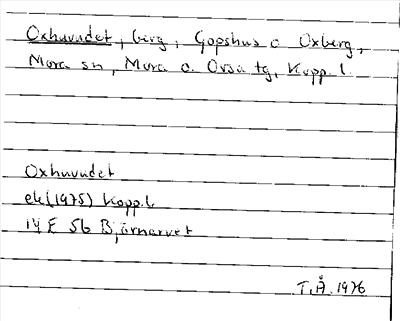 Oxhuvudet, berg, Gopshus o Oxberg,
Mora sn, Mora o. Orsa tg, Kopp. l.
Oxhuvudet
ek (1975) Kopp. l.
14 E 5b Björnarvet
T.Å. 1976